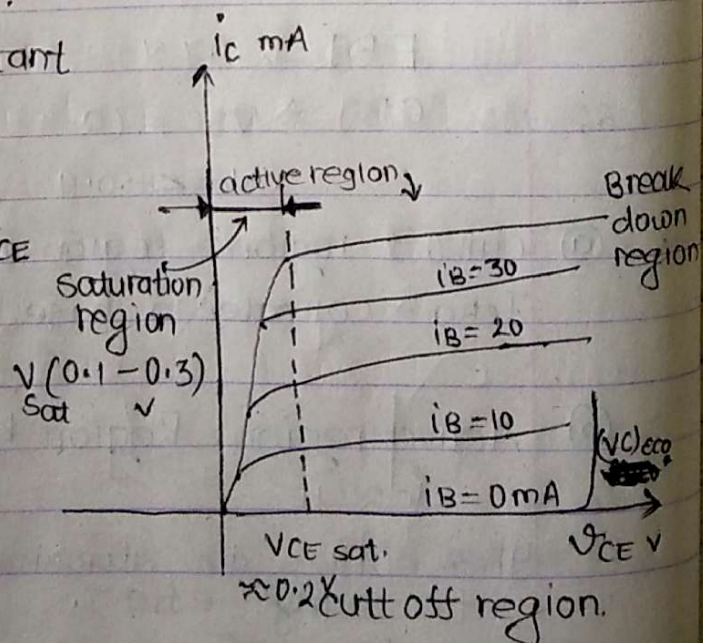 ic mA
tant
active region
Break
down
region
CE
saturation
region
V (0.1 - 0.3)
Sat V
iB = 30
iB = 20
iB = 10
(VC)eco
iB = 0 mA
VCE sat.
VCE V
≈0.2V
cutt off region.